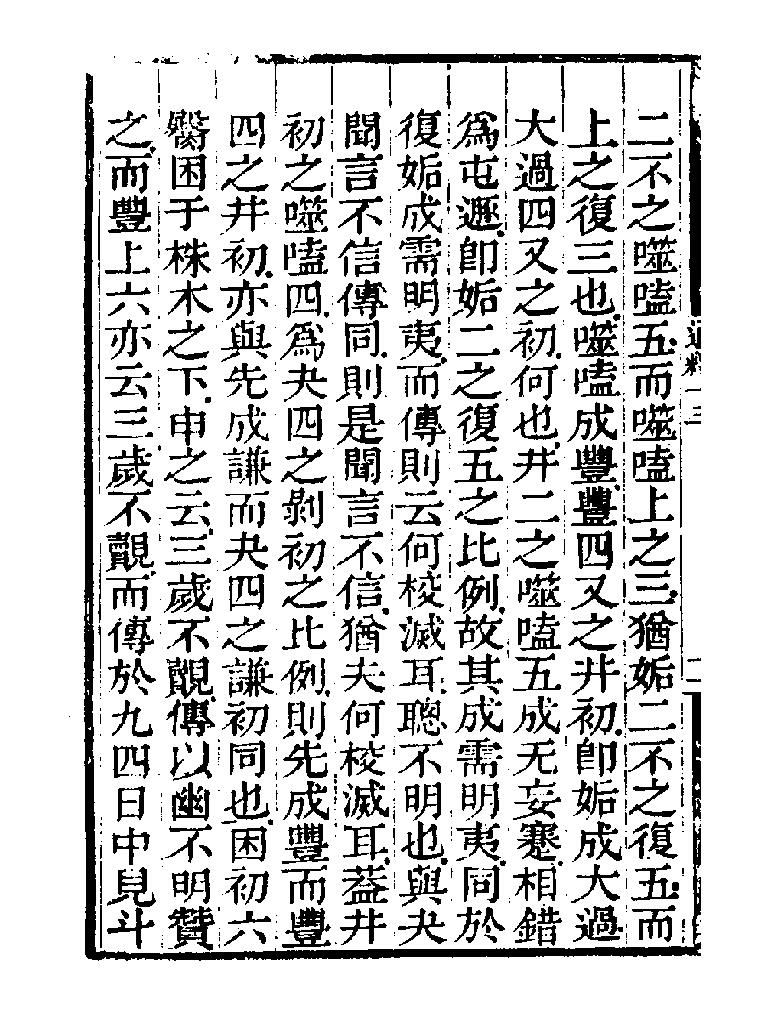 二不之噬嗑五而噬嗑上之三猶姤二不之復五而
上之復三也噬嗑成豐豐四又之井初卽姤成大過
大過四又之初何也井二之噬嗑五成无妄蹇相錯
爲屯遯卽姤二之復五之比例故其成需明夷同於
復姤成需明夷而傳則云何校滅耳聰不明也與夬
聞言不信傳同則是聞言不信猶夫何校滅耳葢井
初之噬嗑四爲夬四之剝初之比例則先成豐而豐
四之井初亦與先成謙而夬四之謙初同也困初六
臀困于株木之下申之云三歲不覿傳以幽不明贊
之而豐上六亦云三歲不覿而傳於九四日中見斗
通釋十三
二